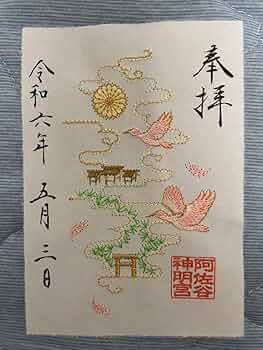 奉拝
阿佐谷
神明宮
令和六年 五月三日